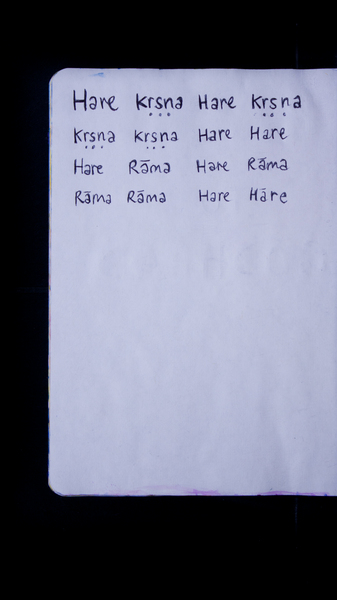 Hare Kṛṣṇa Hare Kṛṣṇa
Kṛṣṇa Kṛṣṇa Hare Hare
Hare Rāma Hare Rāma
Rāma Rāma Hare Hāre